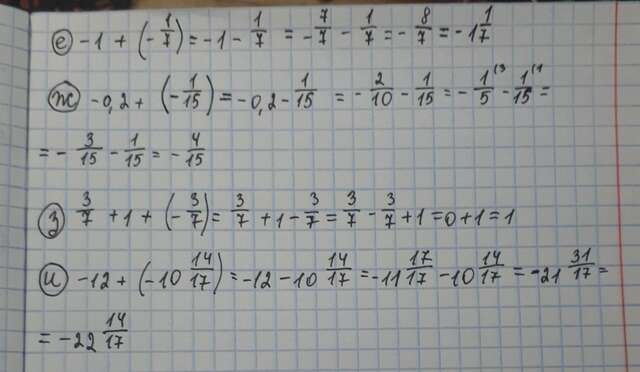 е) -1 + (-1/7) = -1 - 1/7 = -7/7 - 1/7 = -8/7 = -1 1/7
ж) -0,2 + (-1/15) = -0,2 - 1/15 = -2/10 - 1/15 = -1/5 (3 - 1/15 (1 =
= -3/15 - 1/15 = -4/15
з) 3/7 + 1 + (-3/7) = 3/7 + 1 - 3/7 = 3/7 - 3/7 + 1 = 0 + 1 = 1
и) -12 + (-10 14/17) = -12 - 10 14/17 = -11 17/17 - 10 14/17 = -21 31/17 =
= -22 14/17